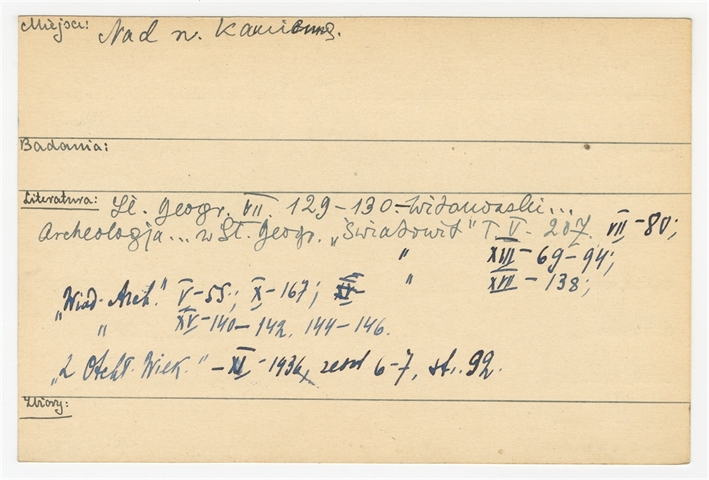 Miejsc: Nad rz. Kamienną.
Badania:
Literatura: Sł. Geogr. VII. 129-130.-Witanowski...
Archeologja... w Sł. Geogr. „Światowit" T V- 207. VII-80;
" XIII-69-94;
„Wiad. Arch." V-55; X-167; " XVII-138;
" XV-140-142, 144-146.
„Z Otchł. Wiek." -XI-1936, zeszt 6-7, st. 92.
Zbiory: